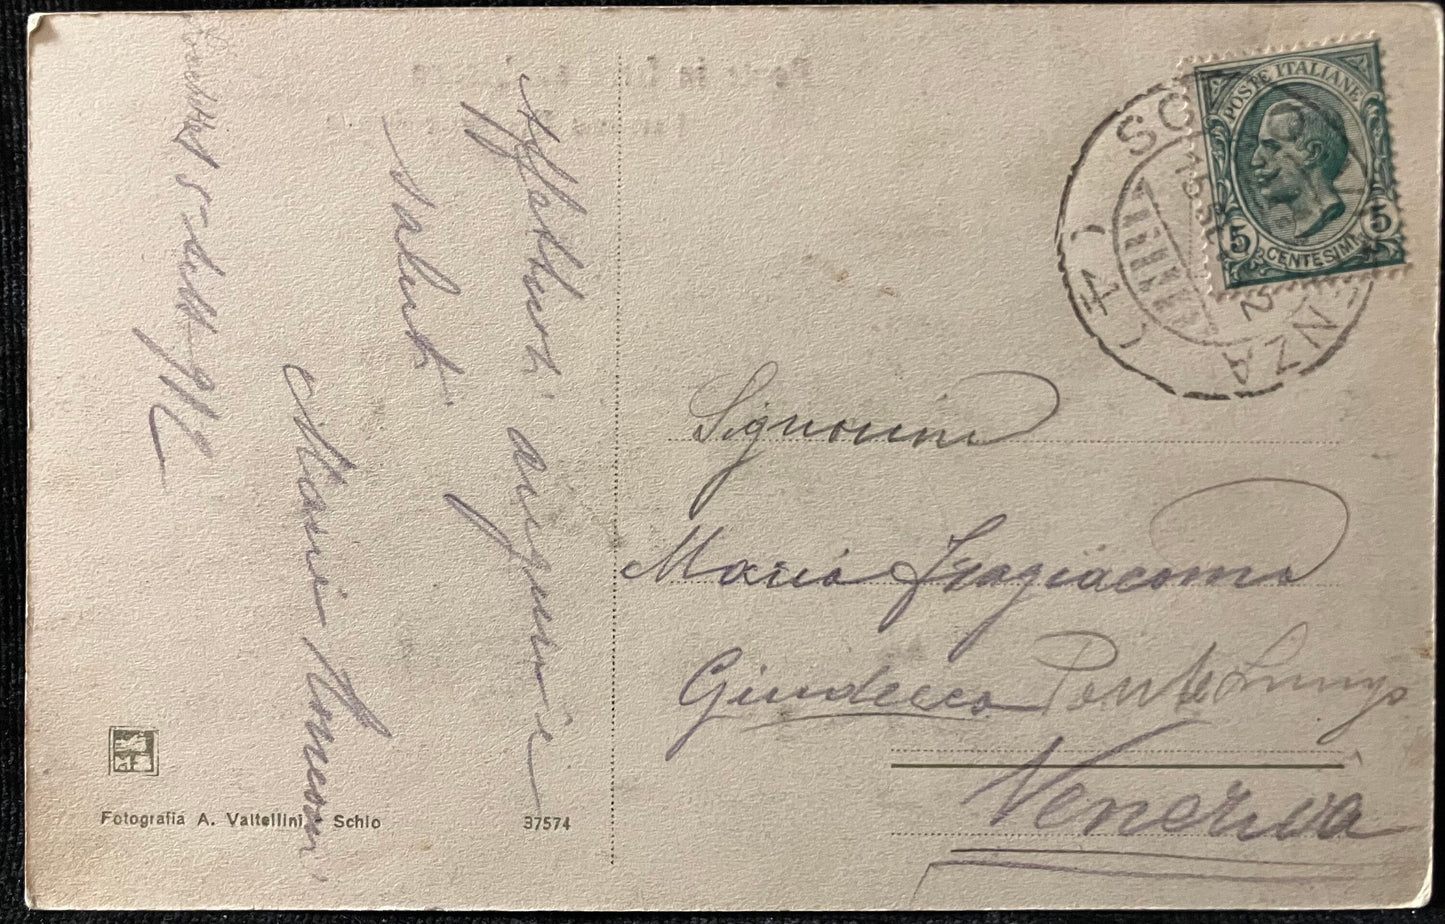 5-8-912
Affettuosi auguri e
saluti
Mario
Fotografia A. Valtellini, Schio
37574
POSTE ITALIANE
5 CENTESIMI 5
Signorina
Maria Fragiacomo
Giudecca Ponte Lungo
Venezia